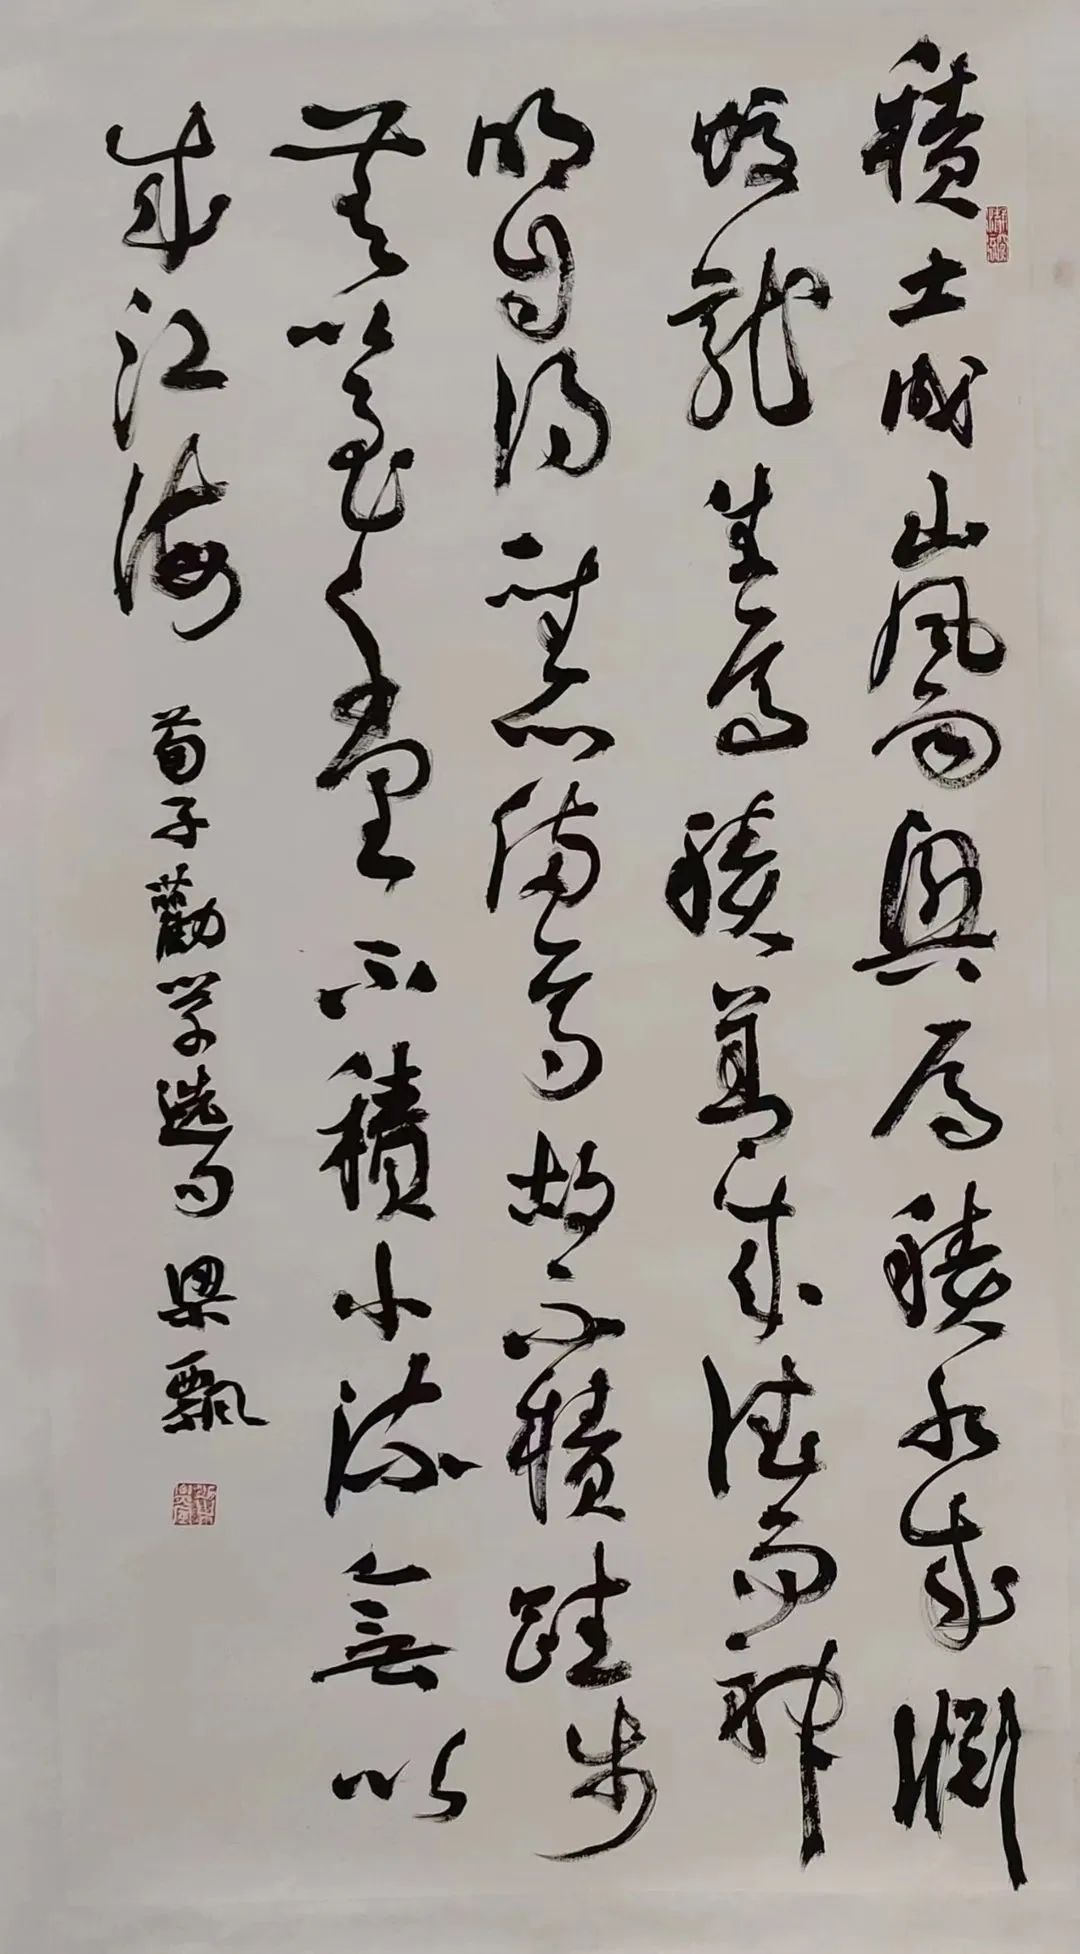 積土成山風雨興焉積水成淵
蛟龍生焉積善成德而神
明自得聖心備焉故不積跬步
無以至千里不積小流無以
成江海
荀子勸學選句 梁飄